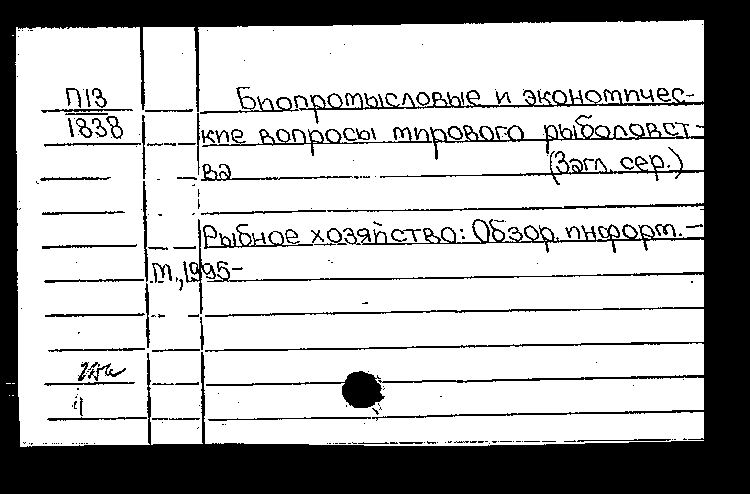 П13
1838
Биопромысловые и экономичес-
кие вопросы мирового рыболовст-
ва (Загл. сер.)
Рыбное хозяйство: Обзор. информ. –
М., 1995–